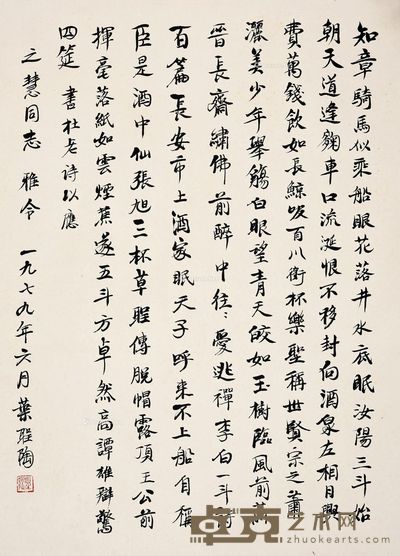 知章騎馬似乘船眼花落井水底眠汝陽三斗始
朝天道逢麴車口流涎恨不移封向酒泉左相日興
費萬錢飲如長鯨吸百川銜杯樂聖稱世賢宗之蕭
灑美少年舉觴白眼望青天皎如玉樹臨風前蘇
晉長齋繡佛前醉中往々愛逃禪李白一斗詩
百篇長安市上酒家眠天子呼來不上船自稱
臣是酒中仙張旭三杯草聖傳脫帽露頂王公前
揮毫落紙如雲煙蕉遂五斗方卓然高譚雄辯驚
四筵 書杜老詩以應
之慧同志 雅令 一九七九年六月 葉聖陶
卓克艺术网
www.zhuokearts.com